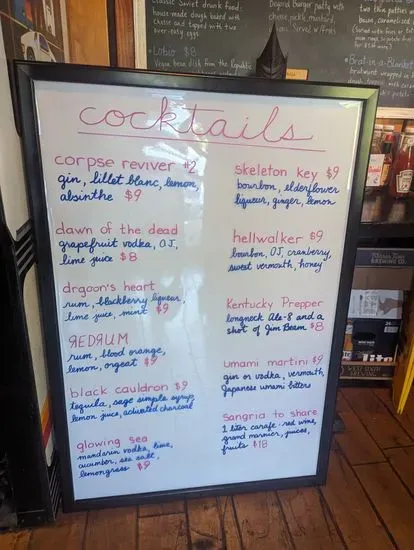 classic Soviet drunk food:
house made dough board with
cheese and topped with two
over-easy eggs
Lobio $8
Vegan bean dish from the Republic
Beyond Burger patty with
cheese, pickle, mustard,
Served w/fries
two thin patties
bacon, caramelized
Brat-in-a-Blanket
bratwurst wrapped in
cocktails
corpse reviver #2
gin, lillet blanc, lemon,
absinthe $9
dawn of the dead
grapefruit vodka, OJ,
lime juice $8
drgoon's heart
rum, blackberry liqueur,
lime juice, mint $9
REDRUM
rum, blood orange,
lemon, orgeat $9
black cauldron $9
tequila, sage simple syrup,
lemon juice, activated charcoal
glowing sea
mandarin vodka, lime,
cucumber, sea salt,
lemongrass $9
skeleton key $9
bourbon, elderflower
liqueur, ginger, lemon
hellwalker $9
bourbon, OJ, cranberry,
sweet vermouth, honey
Kentucky Prepper
longneck Ale-8 and a
shot of Jim Beam $8
umami martini $9
gin or vodka, vermouth,
Japanese umami bitters
sangria to share
1 liter carafe: red wine,
grand marnier, juices,
fruits $18
BREWING CO.
WEST SIXTH